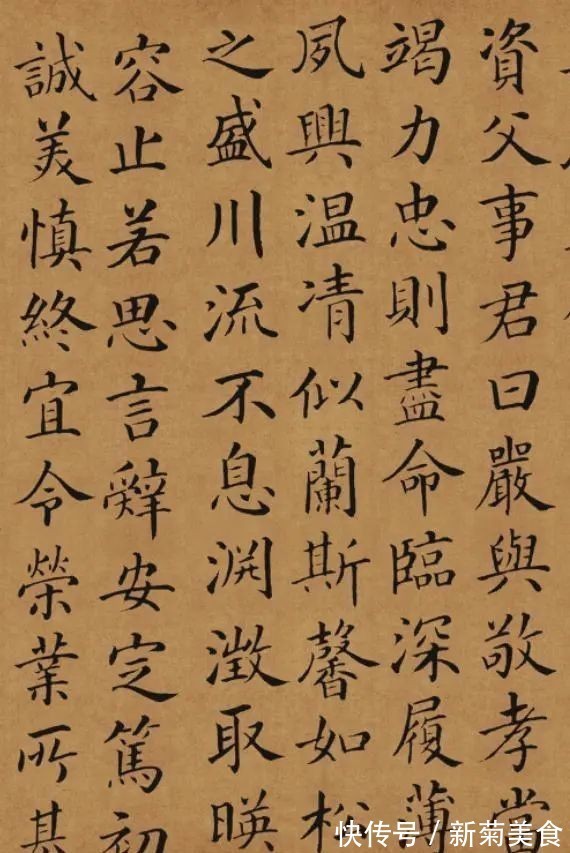 資父事君曰嚴與敬孝當
竭力忠則盡命臨深履薄
夙興温凊似蘭斯馨如松
之盛川流不息渊澂取暎
容止若思言辭安定篤初
誠美慎終宜令榮業所基
快传号/新菊美食